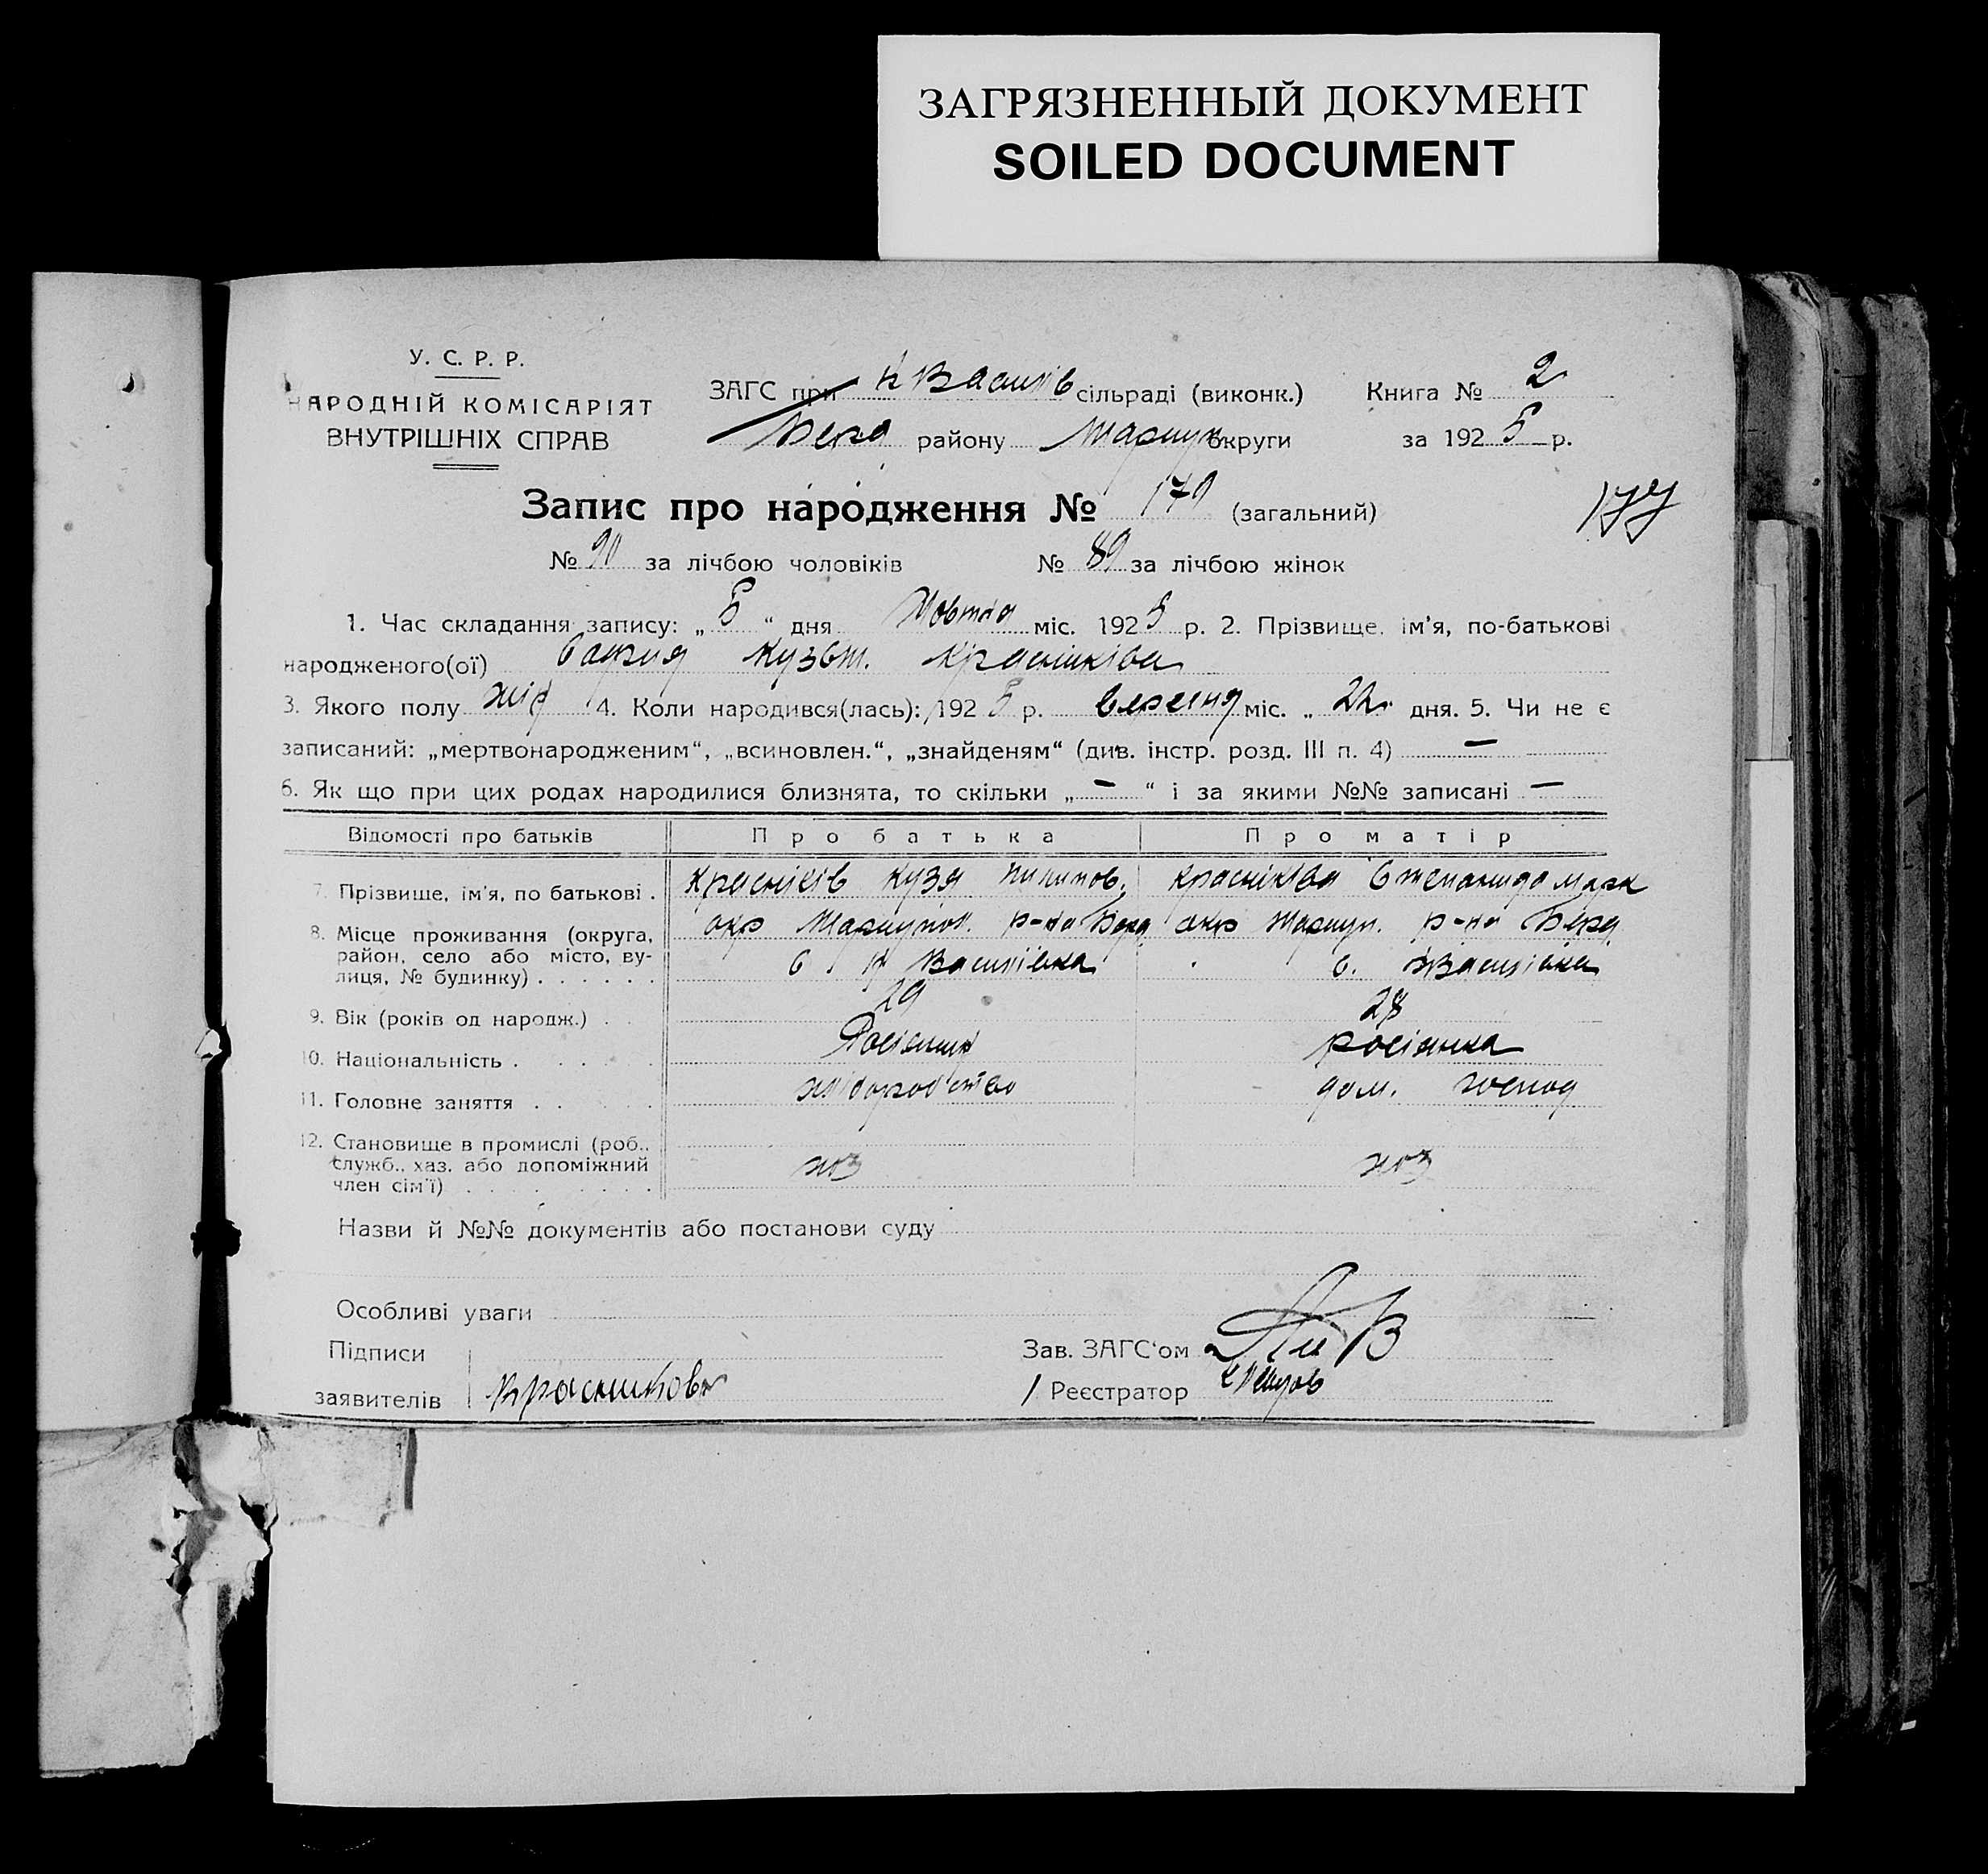 ЗАГРЯЗНЕННЫЙ ДОКУМЕНТ
SOILED DOCUMENT
У. С. Р. Р.
НАРОДНІЙ КОМІСАРІЯТ
ВНУТРІШНІХ СПРАВ
ЗАГС при Н Василів сільраді (виконк.) Книга № 2
Берд району Маріуп округи за 1925 р.
Запис про народження № 179 (загальний)
177
№ 90 за лічбою чоловіків № 89 за лічбою жінок
1. Час складання запису: „ 5 “ дня Жовтня міс. 1925 р. 2. Прізвище, ім'я, по-батькові
народженого(ої) Кузьм. Краснікова
3. Якого полу жін 4. Коли народився(лась): 1925 р. вересня міс. „ 22 дня. 5. Чи не є
записаний: „мертвонародженим“, „всиновлен.“, „знайденям“ (див. інстр. розд. III п. 4) —
6. Як що при цих родах народилися близнята, то скільки „ — “ і за якими №№ записані —
Відомості про батьків Про батька Про матір
7. Прізвище, ім'я, по батькові . Красніків Кузя Пилипов. Краснікова Степанида Марк
8. Місце проживання (округа, окр Маріупол. р-на Берд окр Маріуп. р-на Берд
район, село або місто, ву-
лиця, № будинку) . . . . . . с. Н Василівка с. НВасилівка
9. Вік (років од народж.) . . 29 28
10. Національність . . . . . Росіянин росіянка
11. Головне заняття . . . . хліборобство дом. господ
12. Становище в промислі (роб.,
служб., хаз. або допоміжний хоз хоз
член сім'ї) . . . . . . . . .
Назви й №№ документів або постанови суду
Особливі уваги
Підписи Зав. ЗАГС'ом
заявителів Красников Реєстратор